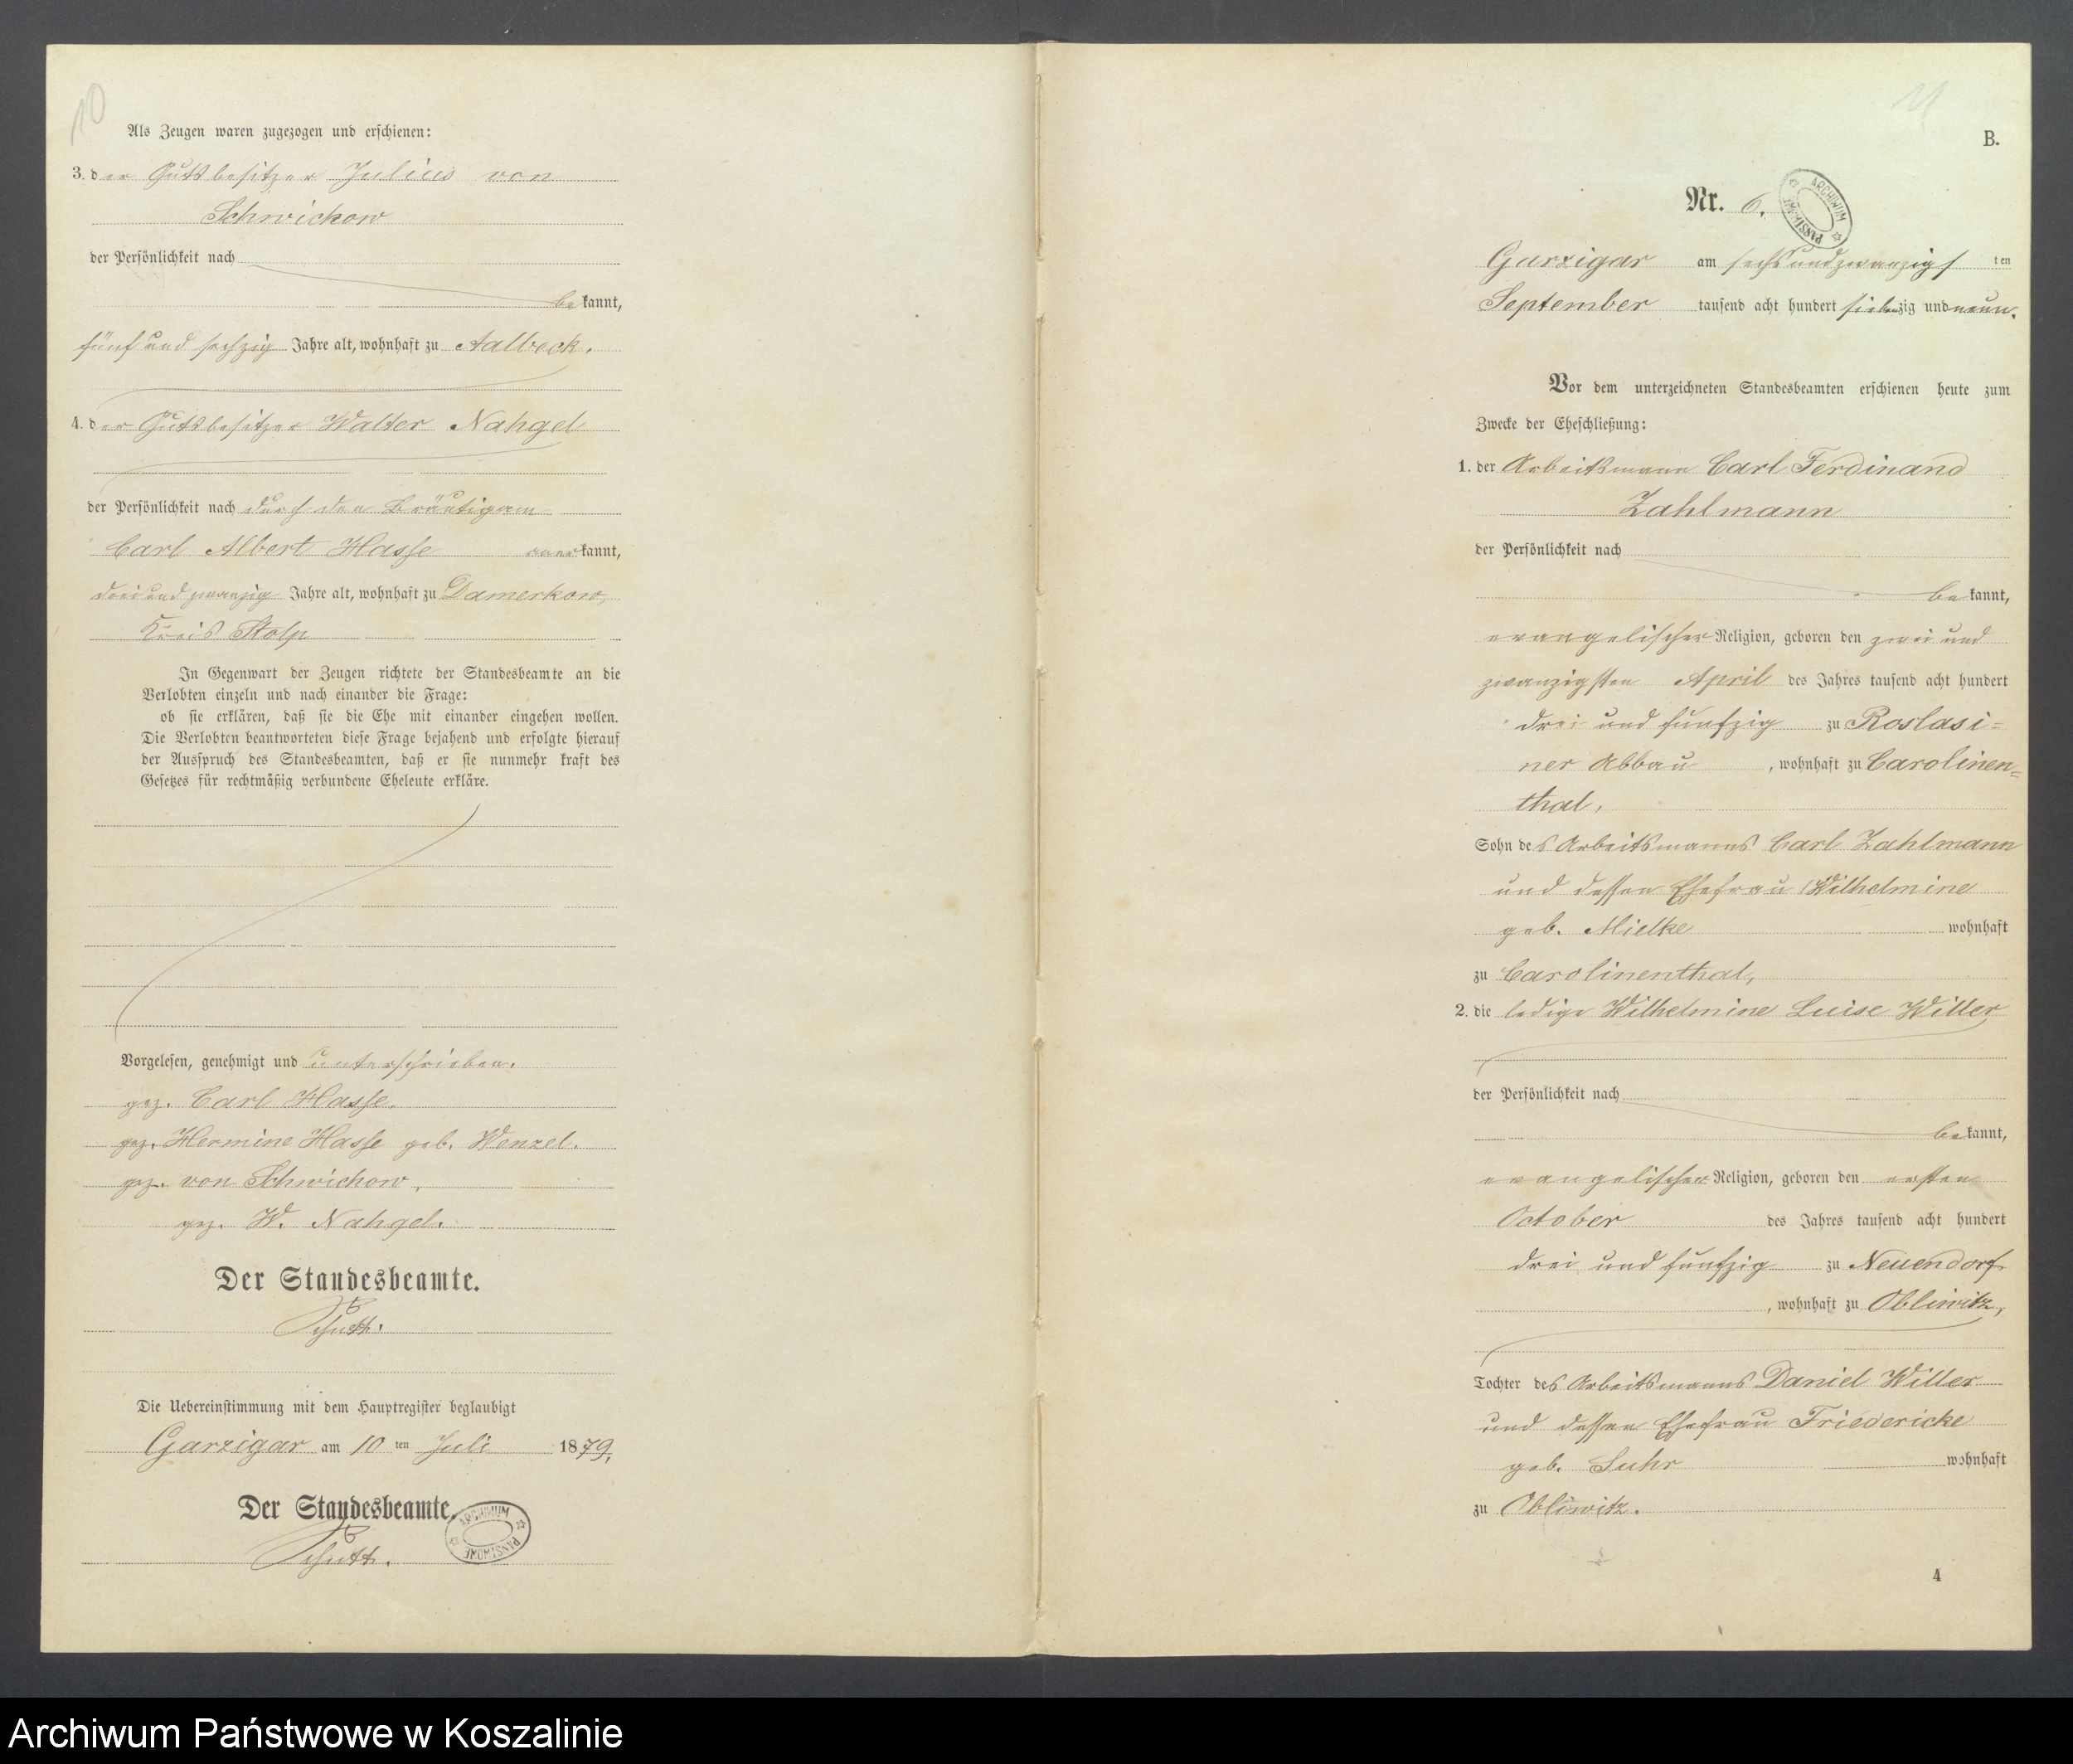 10
Als Zeugen waren zugezogen und erschienen:
3. der Gutsbesitzer Julius von
Schwichow
der Persönlichkeit nach
be kannt,
fünf und sechzig Jahre alt, wohnhaft zu Aalbeck.
4. der Gutsbesitzer Walter Nahgel
der Persönlichkeit nach durch den Bräutigam
Carl Albert Hasse anerkannt,
drei und zwanzig Jahre alt, wohnhaft zu Damerkow,
Kreis Stolp
In Gegenwart der Zeugen richtete der Standesbeamte an die
Verlobten einzeln und nach einander die Frage:
ob sie erklären, daß sie die Ehe mit einander eingehen wollen.
Die Verlobten beantworteten diese Frage bejahend und erfolgte hierauf
der Ausspruch des Standesbeamten, daß er sie nunmehr kraft des
Gesetzes für rechtmäßig verbundene Eheleute erkläre.
Vorgelesen, genehmigt und unterschrieben.
gez. Carl Hasse.
gez. Hermine Hasse geb. Wenzel.
gez. von Schwichow.
gez. W. Nahgel.
Der Standesbeamte.
Schutt.
Die Uebereinstimmung mit dem Hauptregister beglaubigt
Garzigar am 10 ten Juli 1879.
Der Standesbeamte.
Schutt.
ARCHIWUM PAŃSTWOWE
11
B.
Nr. 6.
ARCHIWUM PAŃSTWOWE
Garzigar am sechsundzwanzigsten
September tausend acht hundert siebenzig und neun.
Vor dem unterzeichneten Standesbeamten erschienen heute zum
Zwecke der Eheschließung:
1. der Arbeitsmann Carl Ferdinand
Zahlmann
der Persönlichkeit nach
be kannt,
evangelischer Religion, geboren den zwei und
zwanzigsten April des Jahres tausend acht hundert
drei und funfzig zu Roslasi=
ner Abbau, wohnhaft zu Carolinen=
thal,
Sohn des Arbeitsmanns Carl Zahlmann
und dessen Ehefrau Wilhelmine
geb. Mielke wohnhaft
zu Carolinenthal,
2. die ledige Wilhelmine Luise Willer
der Persönlichkeit nach
be kannt,
evangelischer Religion, geboren den ersten
October des Jahres tausend acht hundert
drei und funfzig zu Neuendorf
, wohnhaft zu Obliwitz,
Tochter des Arbeitsmanns Daniel Willer
und dessen Ehefrau Friedericke
geb. Suhr wohnhaft
zu Obliwitz.
4
Archiwum Państwowe w Koszalinie